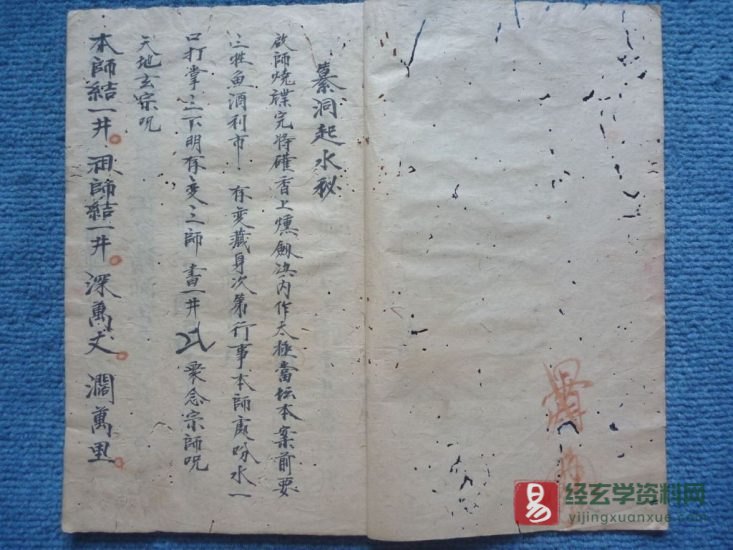 纂洞起水秘
啟師燒牒完將碟香上燻劍決內作太極當坛本案前要
三牲魚酒利市存变藏身次第行事本師處吩水一
口打掌三下明存变三師書一井 眾念宗師呪
天地玄宗呪
本師結一井。祖師結一井。深萬丈。濶萬里。
易 经玄学资料网
yijingxuanxue.com